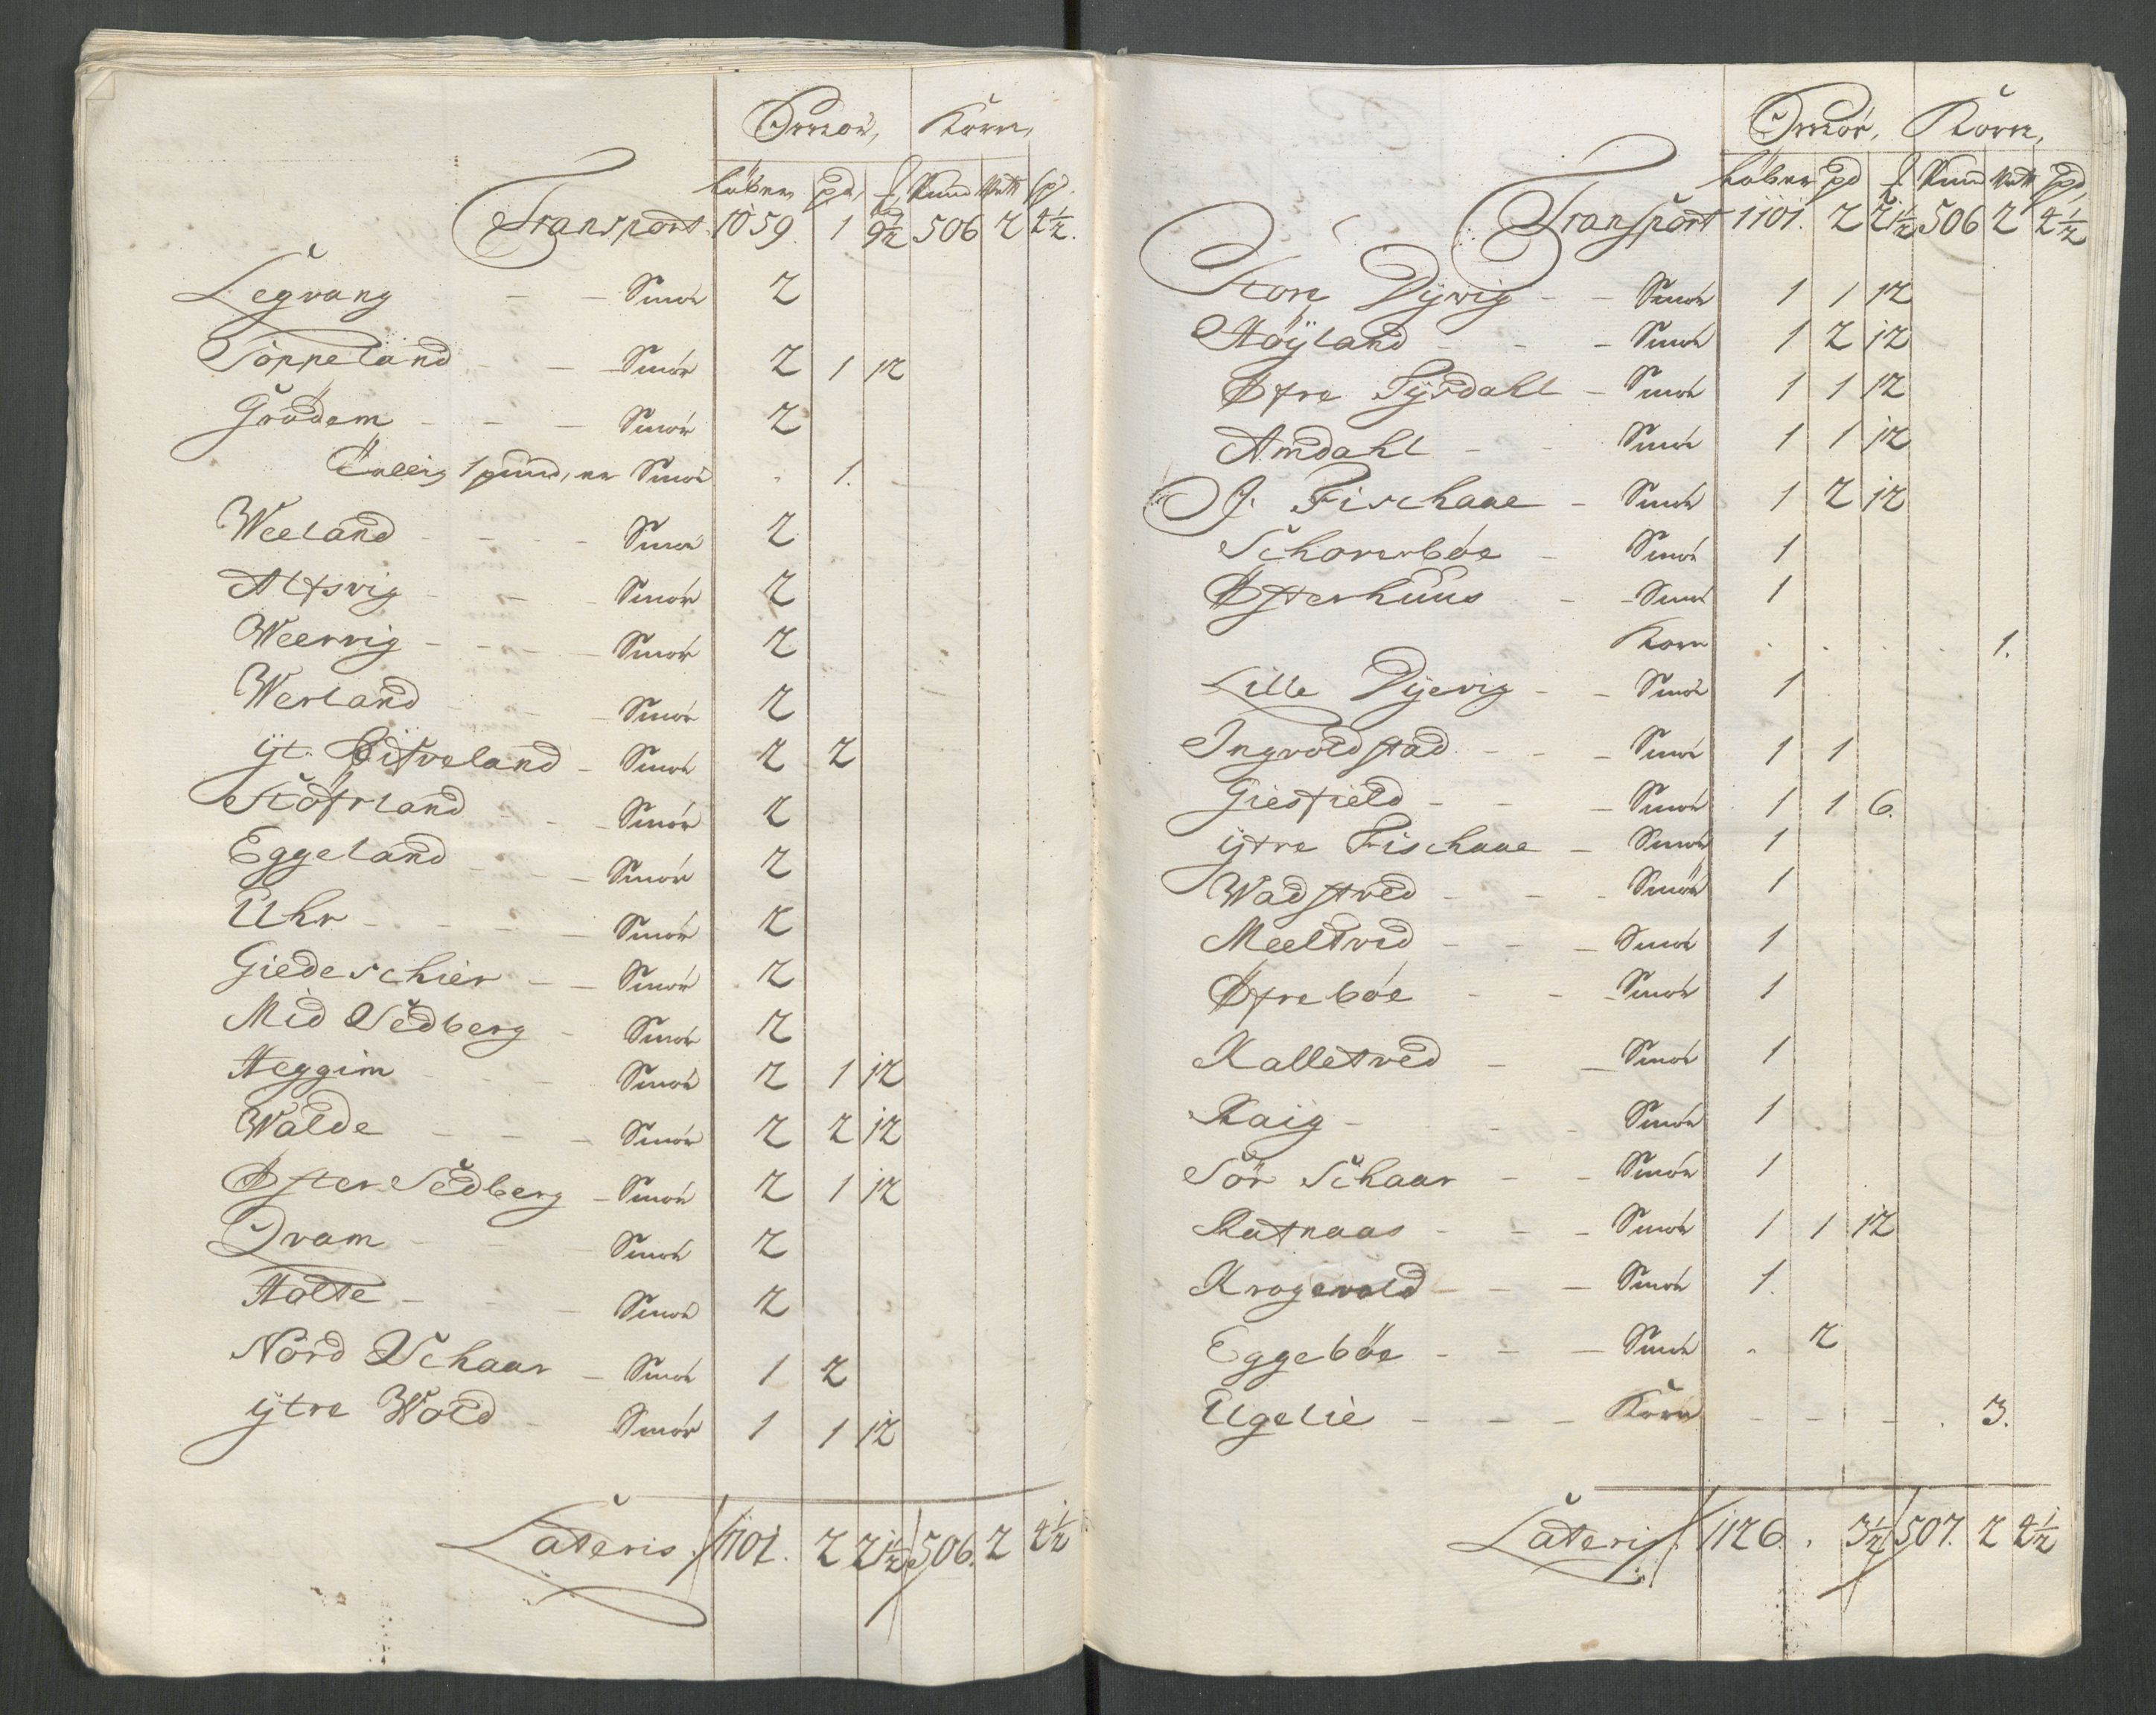 Smör, Korn,
Löber pd, ℔ Pund Vett Spd.
Transport 1059. 1 9½ 506 2 4½.
Legvang - - Smör 2
Toppeland - - Smör 2 1 12
Grödem - - - Smör 2
Tallig 1 pund, er Smör . 1.
Weeland - - - - Smör 2
Alfsvig - - - Smör 2
Weervig - - - - Smör 2
Werland - - - Smör 2
ÿt. Litveland - Smör 2 2
Stöfrland - - - Smör 2
Eggeland - - - Smör 2
Uhr - - - - - Smör 2
Giedeschier - - Smör 2
Mid Sedberg - Smör 2
Heggim - - - Smör 2 1 12
Walde - - - Smör 2 2 12
Øster Sedberg - Smör 2 1 12
Qvam - - Smör 2
Holte - - - Smör 2
Nord Schaar - Smör 1 2
ÿtre Wold - Smör 1 1 12
Lateris 1101. 2 21½ 506. 2 4½
Smör, Korn,
Löber pd ℔ Pund Vett Spd,
Transport 1101. 2 21½ 506 2 4½
Store Dÿrvig - - Smör 1 1 12
Höÿland - - - Smör 1 2 12
Øfre Tÿsdahl - Smör 1 1 12
Amdahl - - Smör 1 1 12
J. Fischaae - Smör 1 2 12
Schorerböe - Smör 1
Østerhuus - - Smör 1
Korn . . . . 1.
Lille Dÿevig - - Smör 1
Ingvoldstad - - - Smör 1 1
Giesfield - - - Smör 1 1 6.
ÿtre Fischaae - Smör 1
Wadstved - - - Smör 1
Meeltved - - - Smör 1
Øfreböe - - - Smör 1
Kalletved - - Smör 1
Haig - - - - Smör 1
Sör Schaar - - Smör 1
Ratnaas - - - Smör 1 1 12
Krogevold - - - Smör 1.
Eggeböe - - - Smör . 2
Ugelie - - - Korn - - - . 3.
Lateris 1126. . 3½ 507. 2 4½